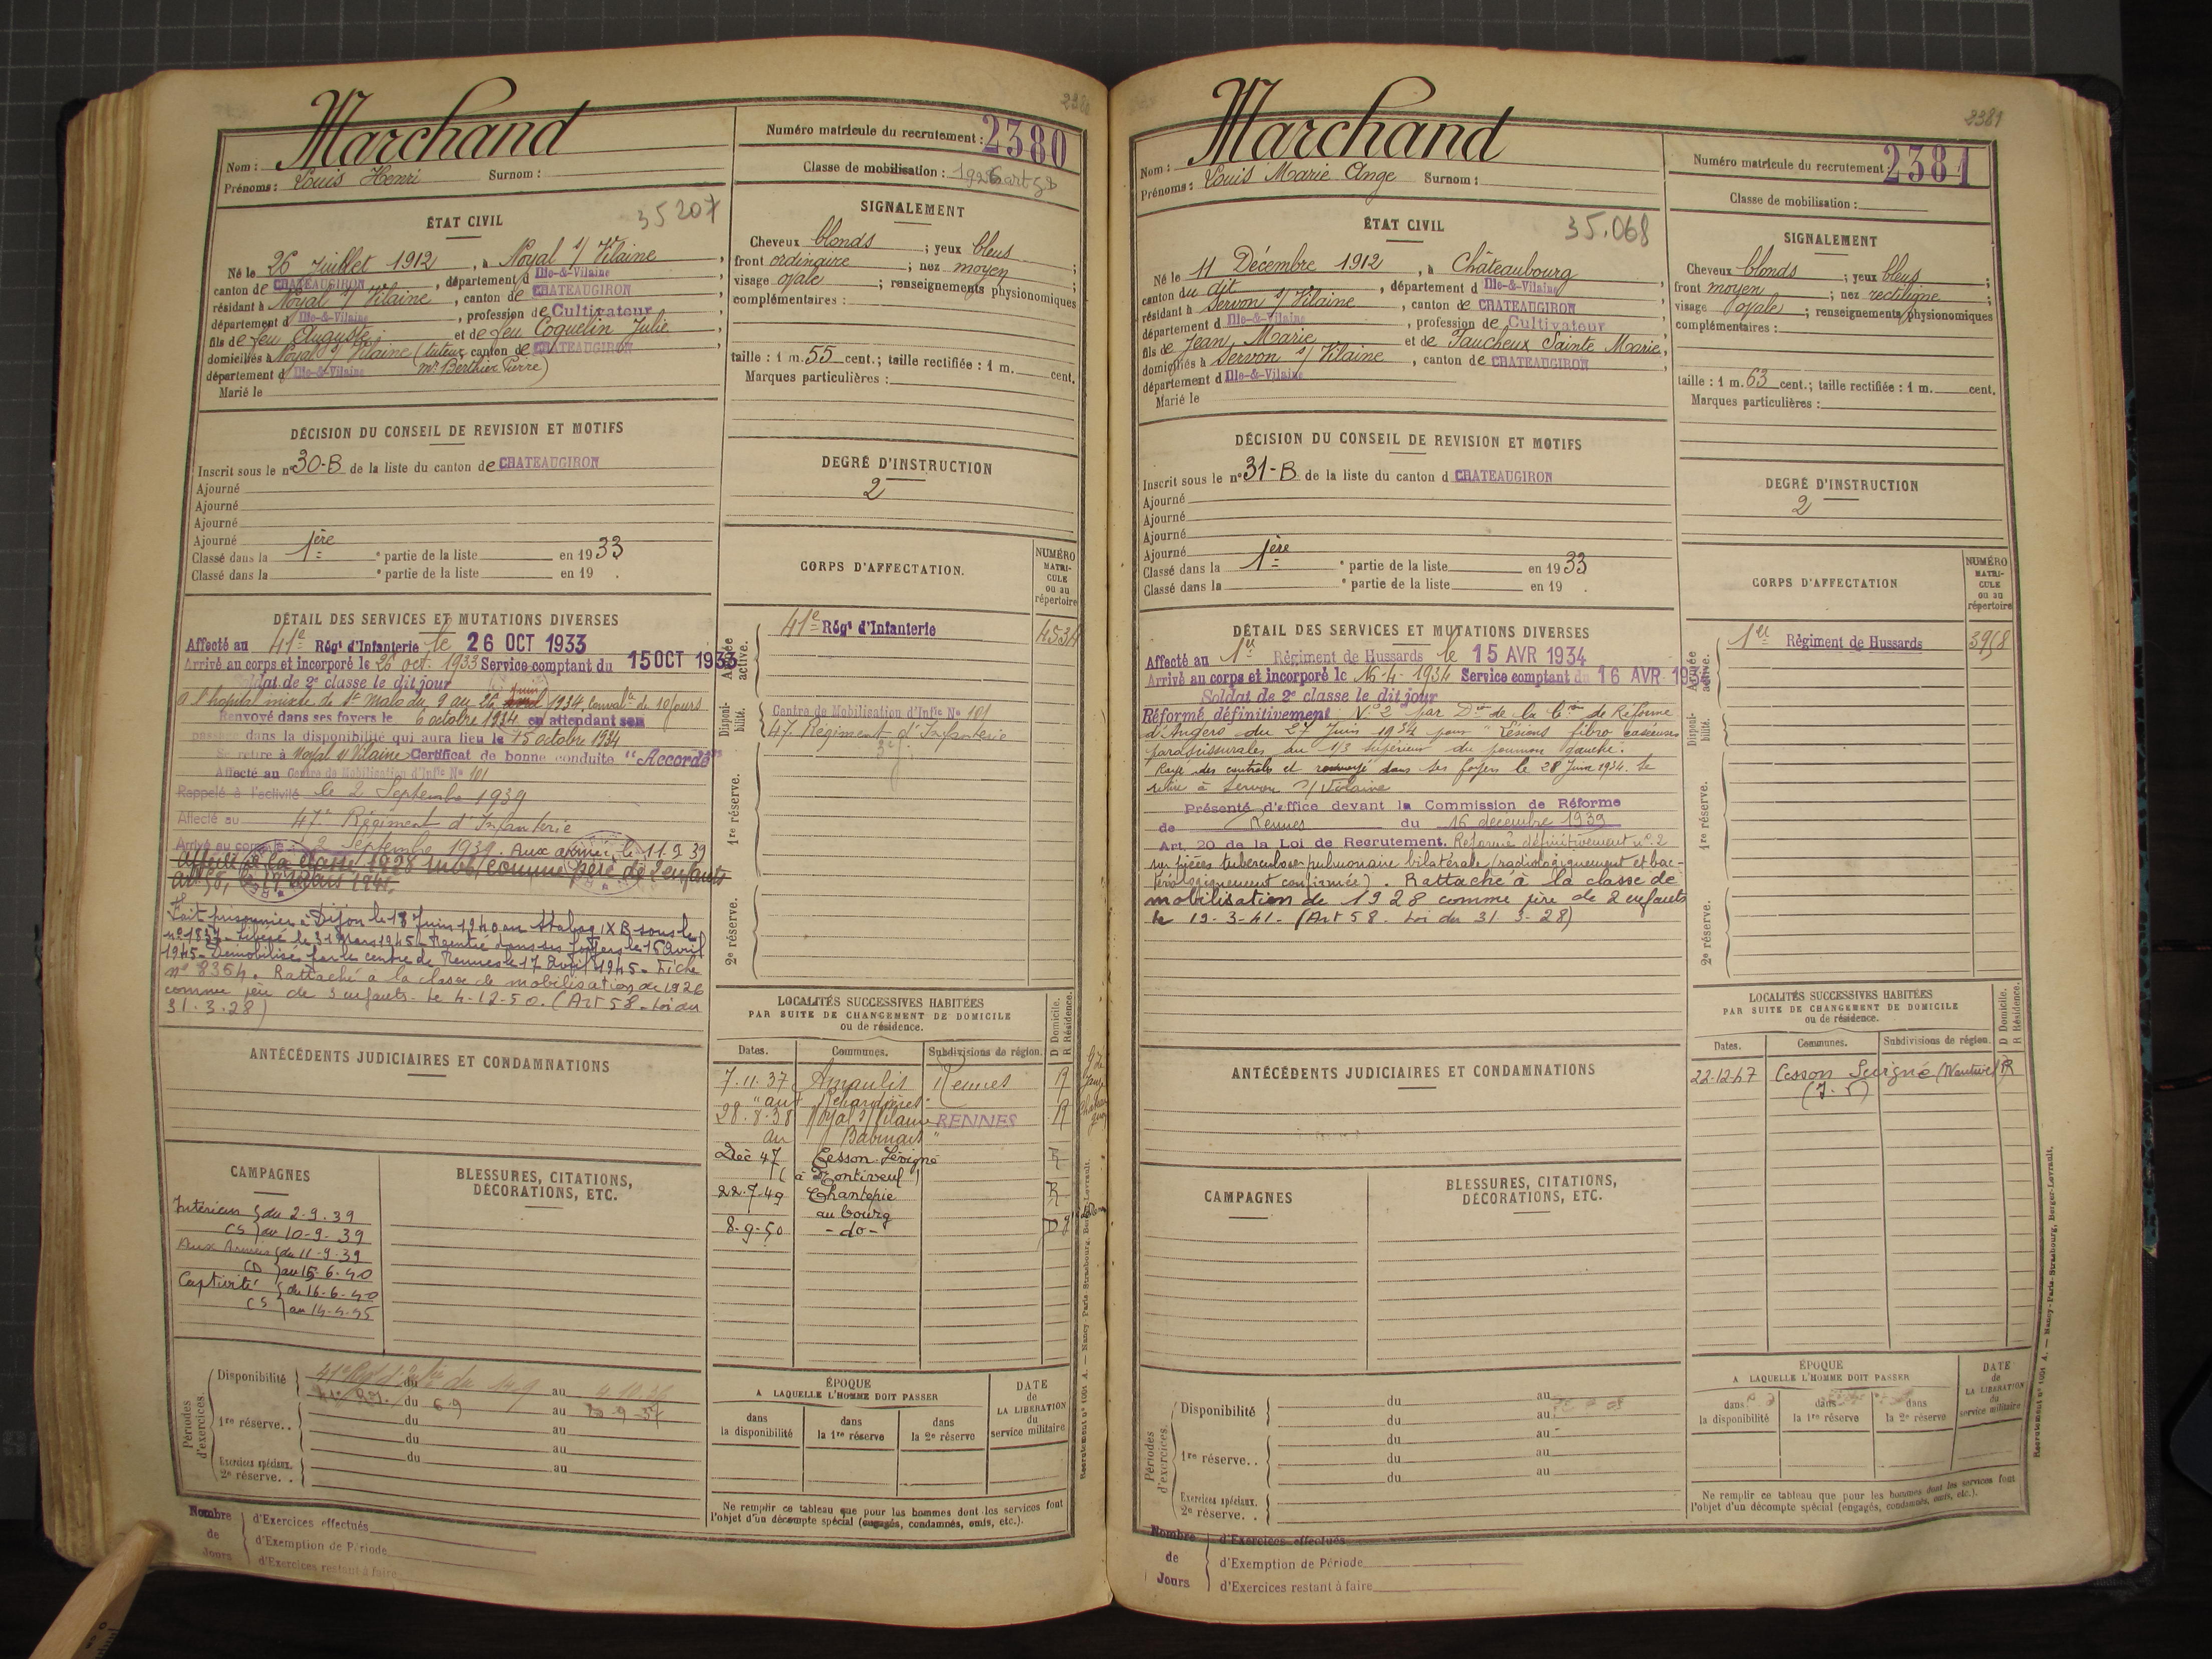 2380
Marchand
Nom :
Prénoms : Louis Henri Surnom :
Numéro matricule du recrutement : 2380
Classe de mobilisation : 1926 art 58
ÉTAT CIVIL
35207
Né le 26 Juillet 1912, à Noyal s/ Vilaine,
canton de CHATEAUGIRON, département d Ille-&-Vilaine
résidant à Noyal s/ Vilaine, canton de CHATEAUGIRON
département d Ille-&-Vilaine, profession de Cultivateur
fils de feu Auguste et de feu Coquelin Julie,
domiciliés à Noyal s/ Vilaine (tuteur canton de CHATEAUGIRON
département d Ille-&-Vilaine mr Berthier Pierre)
Marié le
SIGNALEMENT
Cheveux blonds ; yeux bleus ;
front ordinaire ; nez moyen ;
visage ovale ; renseignements physionomiques
complémentaires :
taille : 1 m. 55 cent.; taille rectifiée : 1 m. cent.
Marques particulières :
DÉCISION DU CONSEIL DE REVISION ET MOTIFS
Inscrit sous le n° 30-B de la liste du canton de CHATEAUGIRON
Ajourné
Ajourné
Ajourné
Ajourné
Classé dans la 1ère ° partie de la liste en 1933
Classé dans la ° partie de la liste en 19 .
DEGRÉ D'INSTRUCTION
2
DÉTAIL DES SERVICES ET MUTATIONS DIVERSES
Affecté au 41e Régt d'Infanterie le 26 OCT 1933
Arrivé au corps et incorporé le 26 oct. 1933 Service comptant du 15 OCT 1933
Soldat de 2e classe le dit jour
à l'hôpital mixte de St Malo du 9 au 26 juin 1934, convalce de 10 jours
Renvoyé dans ses foyers le 6 octobre 1934 en attendant son
passage dans la disponibilité qui aura lieu le 15 octobre 1934
Se retire à Noyal s/ Vilaine Certificat de bonne conduite "Accordé"
Affecté au Centre de Mobilisation d'Infie No 101
Rappelé à l'activité le 2 Septembre 1939
Affecté au 47e Régiment d'Infanterie
Arrivé au corps le 2 Septembre 1939. Aux armées le 11.9.39
Affecté à la classe 1928 mob, comme père de 2 enfants
art 58, le 19 Mars 1941.
Fait prisonnier à Dijon le 18 Juin 1940 au Stalag IX B sous le
n° 1837 - Libéré le 31 Mars 1945 - Rentré dans ses foyers le 15 avril
1945 - Démobilisé par le centre de Rennes le 17 Avril 1945 - Fiche
n° 8364. Rattaché à la classe de mobilisation de 1926
comme père de 3 enfants le 4-12-50. (Art 58 - Loi du
31.3.28)
CORPS D'AFFECTATION.
NUMÉRO MATRICULE ou au répertoire
Armée active.
41e Régt d'Infanterie
4534
Disponibilité.
Centre de Mobilisation d'Infie No 101
47 Régiment d'Infanterie
1re réserve.
2e réserve.
LOCALITÉS SUCCESSIVES HABITÉES
PAR SUITE DE CHANGEMENT DE DOMICILE
ou de résidence.
D Domicile.
R Résidence.
Dates. Communes. Subdivisions de région.
7.11.37 Amanlis Rennes R
28.8.38 Noyal s/ Vilaine RENNES R
au
Déc 47 Cesson-Sévigné R
22.7.49 Chantepie R
au bourg
8-9-50 - do - D
ANTÉCÉDENTS JUDICIAIRES ET CONDAMNATIONS
CAMPAGNES
Intérieur { du 2-9-39
CS } au 10-9-39
Aux Armées { du 11-9-39
CD } au 15-6-40
Captivité { du 16-6-40
CS } au 14-4-45
BLESSURES, CITATIONS,
DÉCORATIONS, ETC.
Périodes d'exercices.
Disponibilité du 14.9 au 4.10.36
du 6 9 au
1re réserve.. du au
du au
du au
Exercices spéciaux.
2e réserve. .
ÉPOQUE
A LAQUELLE L'HOMME DOIT PASSER
dans la disponibilité
dans la 1re réserve
dans la 2e réserve
DATE de LA LIBÉRATION du service militaire
Ne remplir ce tableau que pour les hommes dont les services font
l'objet d'un décompte spécial (engagés, condamnés, omis, etc.).
Nombre de Jours
d'Exercices effectués
d'Exemption de Période
d'Exercices restant à faire
Recrutement n° 1001 A. — Nancy-Paris-Strasbourg, Berger-Levrault.
2381
Marchand
Nom :
Prénoms : Louis Marie Ange Surnom :
Numéro matricule du recrutement : 2381
Classe de mobilisation :
ÉTAT CIVIL
35.068
Né le 11 Décembre 1912, à Châteaubourg,
canton du dit, département d Ille-&-Vilaine
résidant à Servon s/ Vilaine, canton de CHATEAUGIRON
département d Ille-&-Vilaine, profession de Cultivateur
fils de Jean Marie et de Faucheux Sainte Marie,
domiciliés à Servon s/ Vilaine, canton de CHATEAUGIRON
département d Ille-&-Vilaine
Marié le
SIGNALEMENT
Cheveux blonds ; yeux bleus ;
front moyen ; nez rectiligne ;
visage ovale ; renseignements physionomiques
complémentaires :
taille : 1 m. 63 cent.; taille rectifiée : 1 m. cent.
Marques particulières :
DÉCISION DU CONSEIL DE REVISION ET MOTIFS
Inscrit sous le n° 31-B de la liste du canton d CHATEAUGIRON
Ajourné
Ajourné
Ajourné
Ajourné
Classé dans la 1ère ° partie de la liste en 1933
Classé dans la ° partie de la liste en 19 .
DEGRÉ D'INSTRUCTION
2
DÉTAIL DES SERVICES ET MUTATIONS DIVERSES
Affecté au 1er Régiment de Hussards le 15 AVR 1934
Arrivé au corps et incorporé le 16-4-1934 Service comptant du 16 AVR 1934
Soldat de 2e classe le dit jour
Réformé définitivement N° 2 par Don de la Con de Réforme
d'Angers du 27 Juin 1934 pour "Lésions fibro caséeuses
parascissurales du 1/3 supérieur du poumon gauche.
Rayé des contrôles et renvoyé dans ses foyers le 28 Juin 1934. Se
retire à Servon s/ Vilaine
Présenté d'office devant la Commission de Réforme
de Rennes du 16 décembre 1939
Art. 20 de la Loi de Recrutement. Réformé définitivement n° 2
sur pièces tuberculose pulmonaire bilatérale (radiologiquement et bac-
tériologiquement confirmée). Rattaché à la classe de
mobilisation de 1928 comme père de 2 enfants
le 19-3-41. (Art 58. Loi du 31-3-28)
CORPS D'AFFECTATION
NUMÉRO MATRICULE ou au répertoire
Armée active.
1er Régiment de Hussards
3958
Disponibilité.
1re réserve.
2e réserve.
LOCALITÉS SUCCESSIVES HABITÉES
PAR SUITE DE CHANGEMENT DE DOMICILE
ou de résidence.
D Domicile.
R Résidence.
Dates. Communes. Subdivisions de région.
22-12-47 Cesson Sévigné R
ANTÉCÉDENTS JUDICIAIRES ET CONDAMNATIONS
CAMPAGNES
BLESSURES, CITATIONS,
DÉCORATIONS, ETC.
Périodes d'exercices.
Disponibilité du au
du au
1re réserve.. du au
du au
du au
Exercices spéciaux.
2e réserve. .
ÉPOQUE
A LAQUELLE L'HOMME DOIT PASSER
dans la disponibilité
dans la 1re réserve
dans la 2e réserve
DATE de LA LIBÉRATION du service militaire
Ne remplir ce tableau que pour les hommes dont les services font
l'objet d'un décompte spécial (engagés, condamnés, omis, etc.).
Nombre de Jours
d'Exercices effectués
d'Exemption de Période
d'Exercices restant à faire
Recrutement n° 1001 A. — Nancy-Paris-Strasbourg, Berger-Levrault.